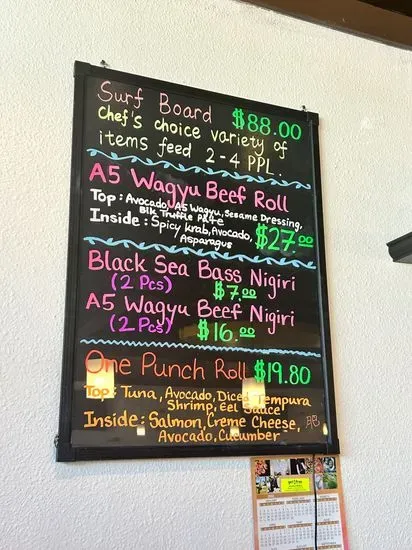 Surf Board $88.00
Chef's choice variety of
items feed 2-4 PPL.
A5 Wagyu Beef Roll
Top: Avocado, A5 Wagyu, Sesame Dressing,
Blk Truffle Pate
Inside: Spicy Krab, Avocado, $27.00
Asparagus
Black Sea Bass Nigiri
(2 Pcs) $7.00
A5 Wagyu Beef Nigiri
(2 Pcs) $16.00
One Punch Roll $19.80
Top: Tuna, Avocado, Diced Tempura
Shrimp, Eel Sauce
Inside: Salmon, Creme Cheese,
Avocado, Cucumber